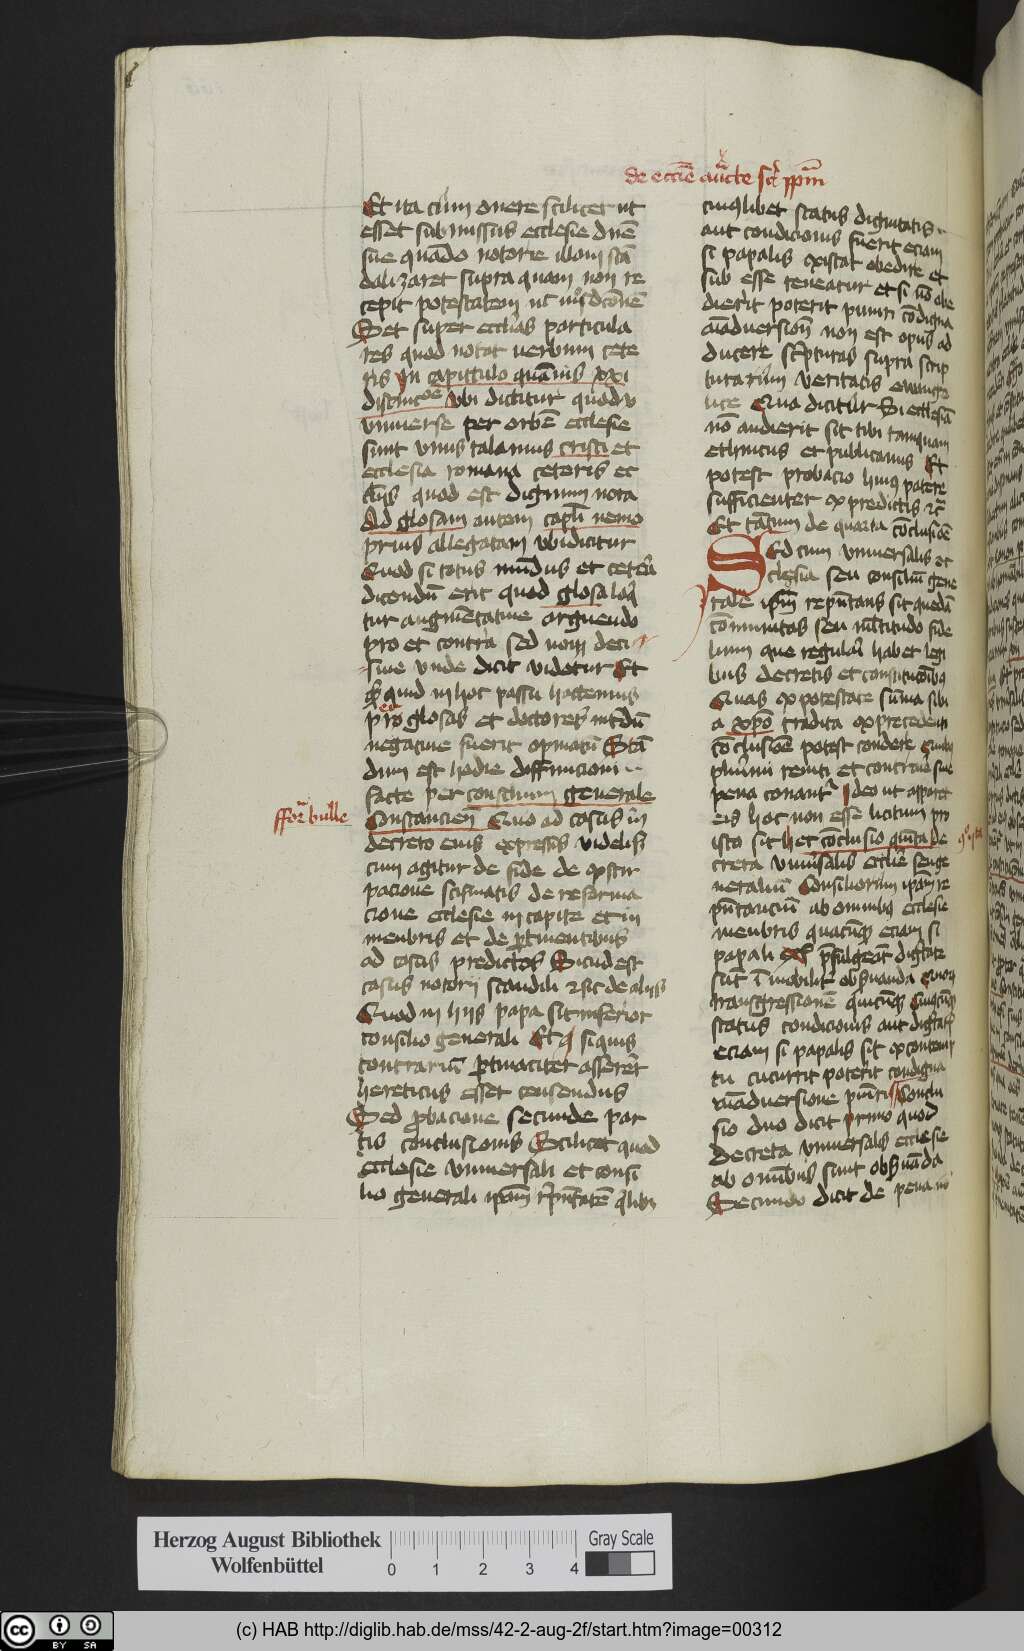 de eccīe auc̄te sr̄ ppām
Et ita cum onere scilicet ut
esset submissus ecclesie dnē
sue quādo notorie illam scā
dalizaret supra quam non re
cepit potestatem ut
Set super eccl̄ias particula
res quod notat verbum cete
ris In capitulo quāuis xxi
distinctōe Vbi dicitur quod v
vniuerse per orbē ecclesie
sunt vnus talamus cristi et
ecclesia romana ceteris et
quod est dignum nota
Ad glosam autem capl̄i nemo
prius allegatam vbi dicitur
Quod si totus mūdus et cetera
dicendū erit quod glosa loq̄
tur augmētatiue arguendo
pro et contra sed non deci
siue vnde dicit videtur Et
quid in hoc passu hactenus
pro glosas et doctores
negatiue fuerit opinatū Stā
dum est hodie diffinicioni
facte per consilium generale
Constancien̄ Quo ad casus in
decreto eius expressis videlis3
cum agitur de fide de exstir
pacione scismatis de reforma
cione ecclesie in capite et in
menbris et de ptinentibus
ad casus predictos Sicud est
casus notorij scandili et sic de alijs
Quod in hijs papa sit inferior
consilio generali Et si quis
contrariū ptinaciter assereret
hereticus esset censendus
Sed pbacione secunde par
tis conclusionis Scilicet quod
ecclesie vniuersali et consi
lio generali ipām rp̄ntatē
ffor̄ bulle
cuiuslibet status dignitatis
aut condicionis fuerit eciam
si papalis existat obedire et
sub esse teneatur et si nō obe
dierit poterit puniri cōdigna
aīaduersion̄ non est opus ad
ducere scripturas supra scrip
turarum veritatis ewange
lice Qua dicitur Si ecclesiā
nō audierit sit tibi tamquam
ethnicus et publicanus Et
potest probacio huius patere
sufficienter ex predictis etc̄
Et tātum de quarta cōclusiōe
Sed cum vniuersalis ec
clesia seu consiliū gene
rale ipām rep̄ntans sit quedā
cōmunitas seu mltitudo fide
lium que regulari habet legi
bus decretis et constitucōibus
Quas ex potestate suma sibi
a xpō tradita ex precedenti
cōclusiōe potest condere
plurimi reniti et contraue sue
pena conantr̄ Ideo ut appareat
eis hoc non esse licitum pro
isto sit hec cōclusio quīta De
creta vniūsalis ecclie seu ge
neraliū Consiliorum ipām re
pn̄tanciū ab omnibus ecclesie
menbris quacūqz eciam si
papali p̄fulgeāt dig̅tate
sūt īmobilit̄ obs̄uanda
transgressionē quicūqz
status condicionis aut
eciam si papalis sit ex contemp
tu cucurrit poterit condigna
aīaduersione puniri Conclu
sio duo dicit primo quod
decreta vniuersalis ecclesie
ab omībus sunt obs̄uāda
Secundo dicit de pena
Herzog August Bibliothek
Wolfenbüttel
0 1 2 3 4
Gray Scale
cc BY SA
(c) HAB http://diglib.hab.de/mss/42-2-aug-2f/start.htm?image=00312